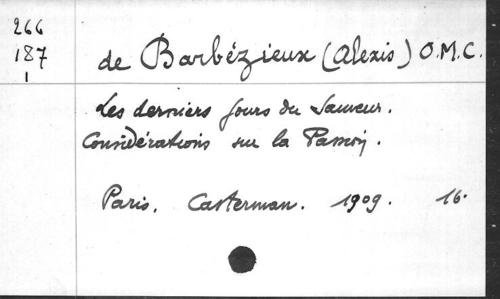 266
187
1
de Barbézieux (Alexis) O.M.C.
Les derniers jours du Sauveur.
Considérations sur la Passion.
Paris. Casterman. 1909. 16.